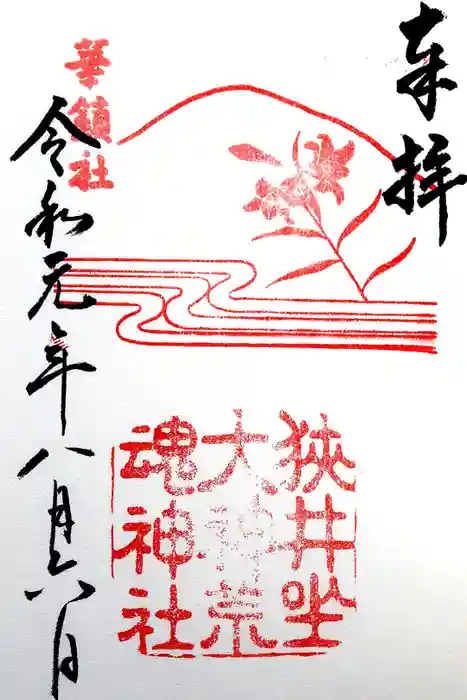 奉拝
狹井坐
大神荒
魂神社
華鎮社
令和元年八月六日